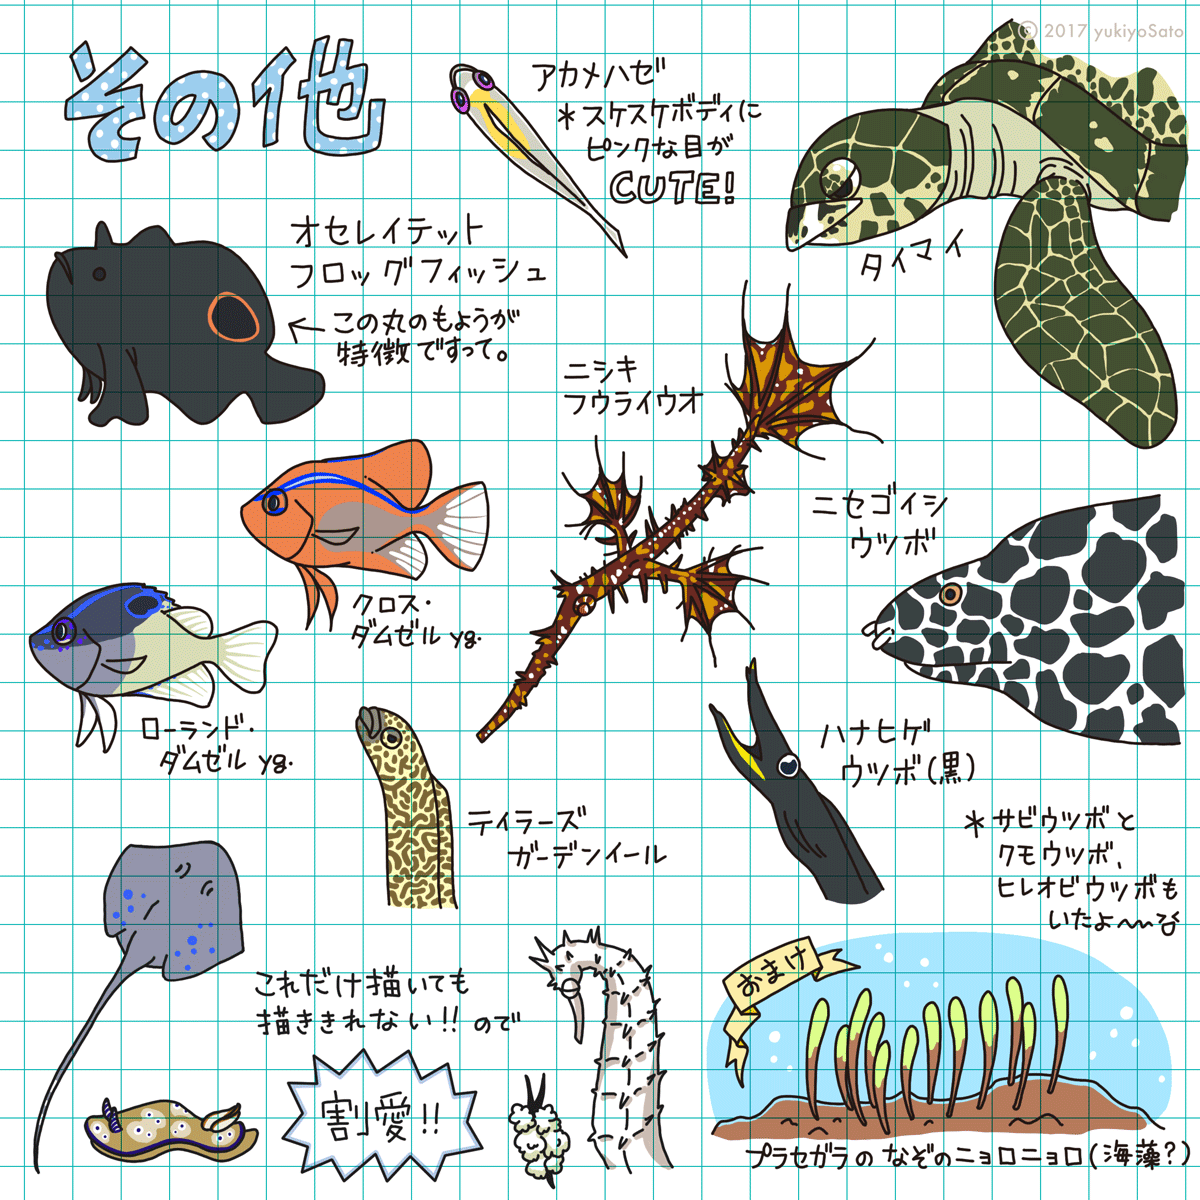 © 2017 yukiyoSato
その他
アカメハゼ
＊スケスケボディに
ピンクな目が
CUTE!
タイマイ
オセレイテット
フロッグフィッシュ
←この丸のもようが
特徴ですって。
ニシキ
フウライウオ
ニセゴイシ
ウツボ
クロス・
ダムゼル yg.
ローランド・
ダムゼル yg.
ハナヒゲ
ウツボ(黒)
テイラーズ
ガーデンイール
＊サビウツボと
クモウツボ、
ヒレオビウツボも
いたよ〜〜
これだけ描いても
描ききれない!!ので
割愛!!
おまけ
プラセガラのなぞのニョロニョロ(海藻?)